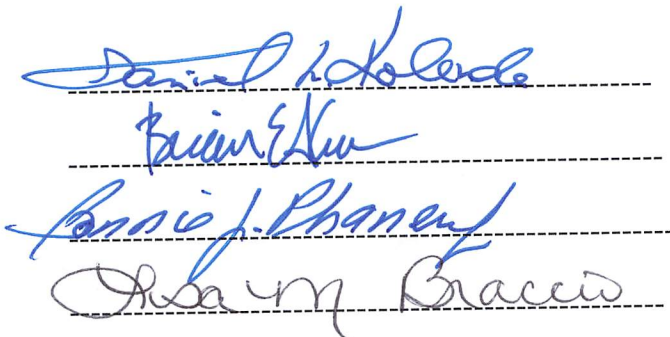 Daniel L. Kolenda
Brian E.
Bonnie J. Phaneuf
Lisa M Braccio